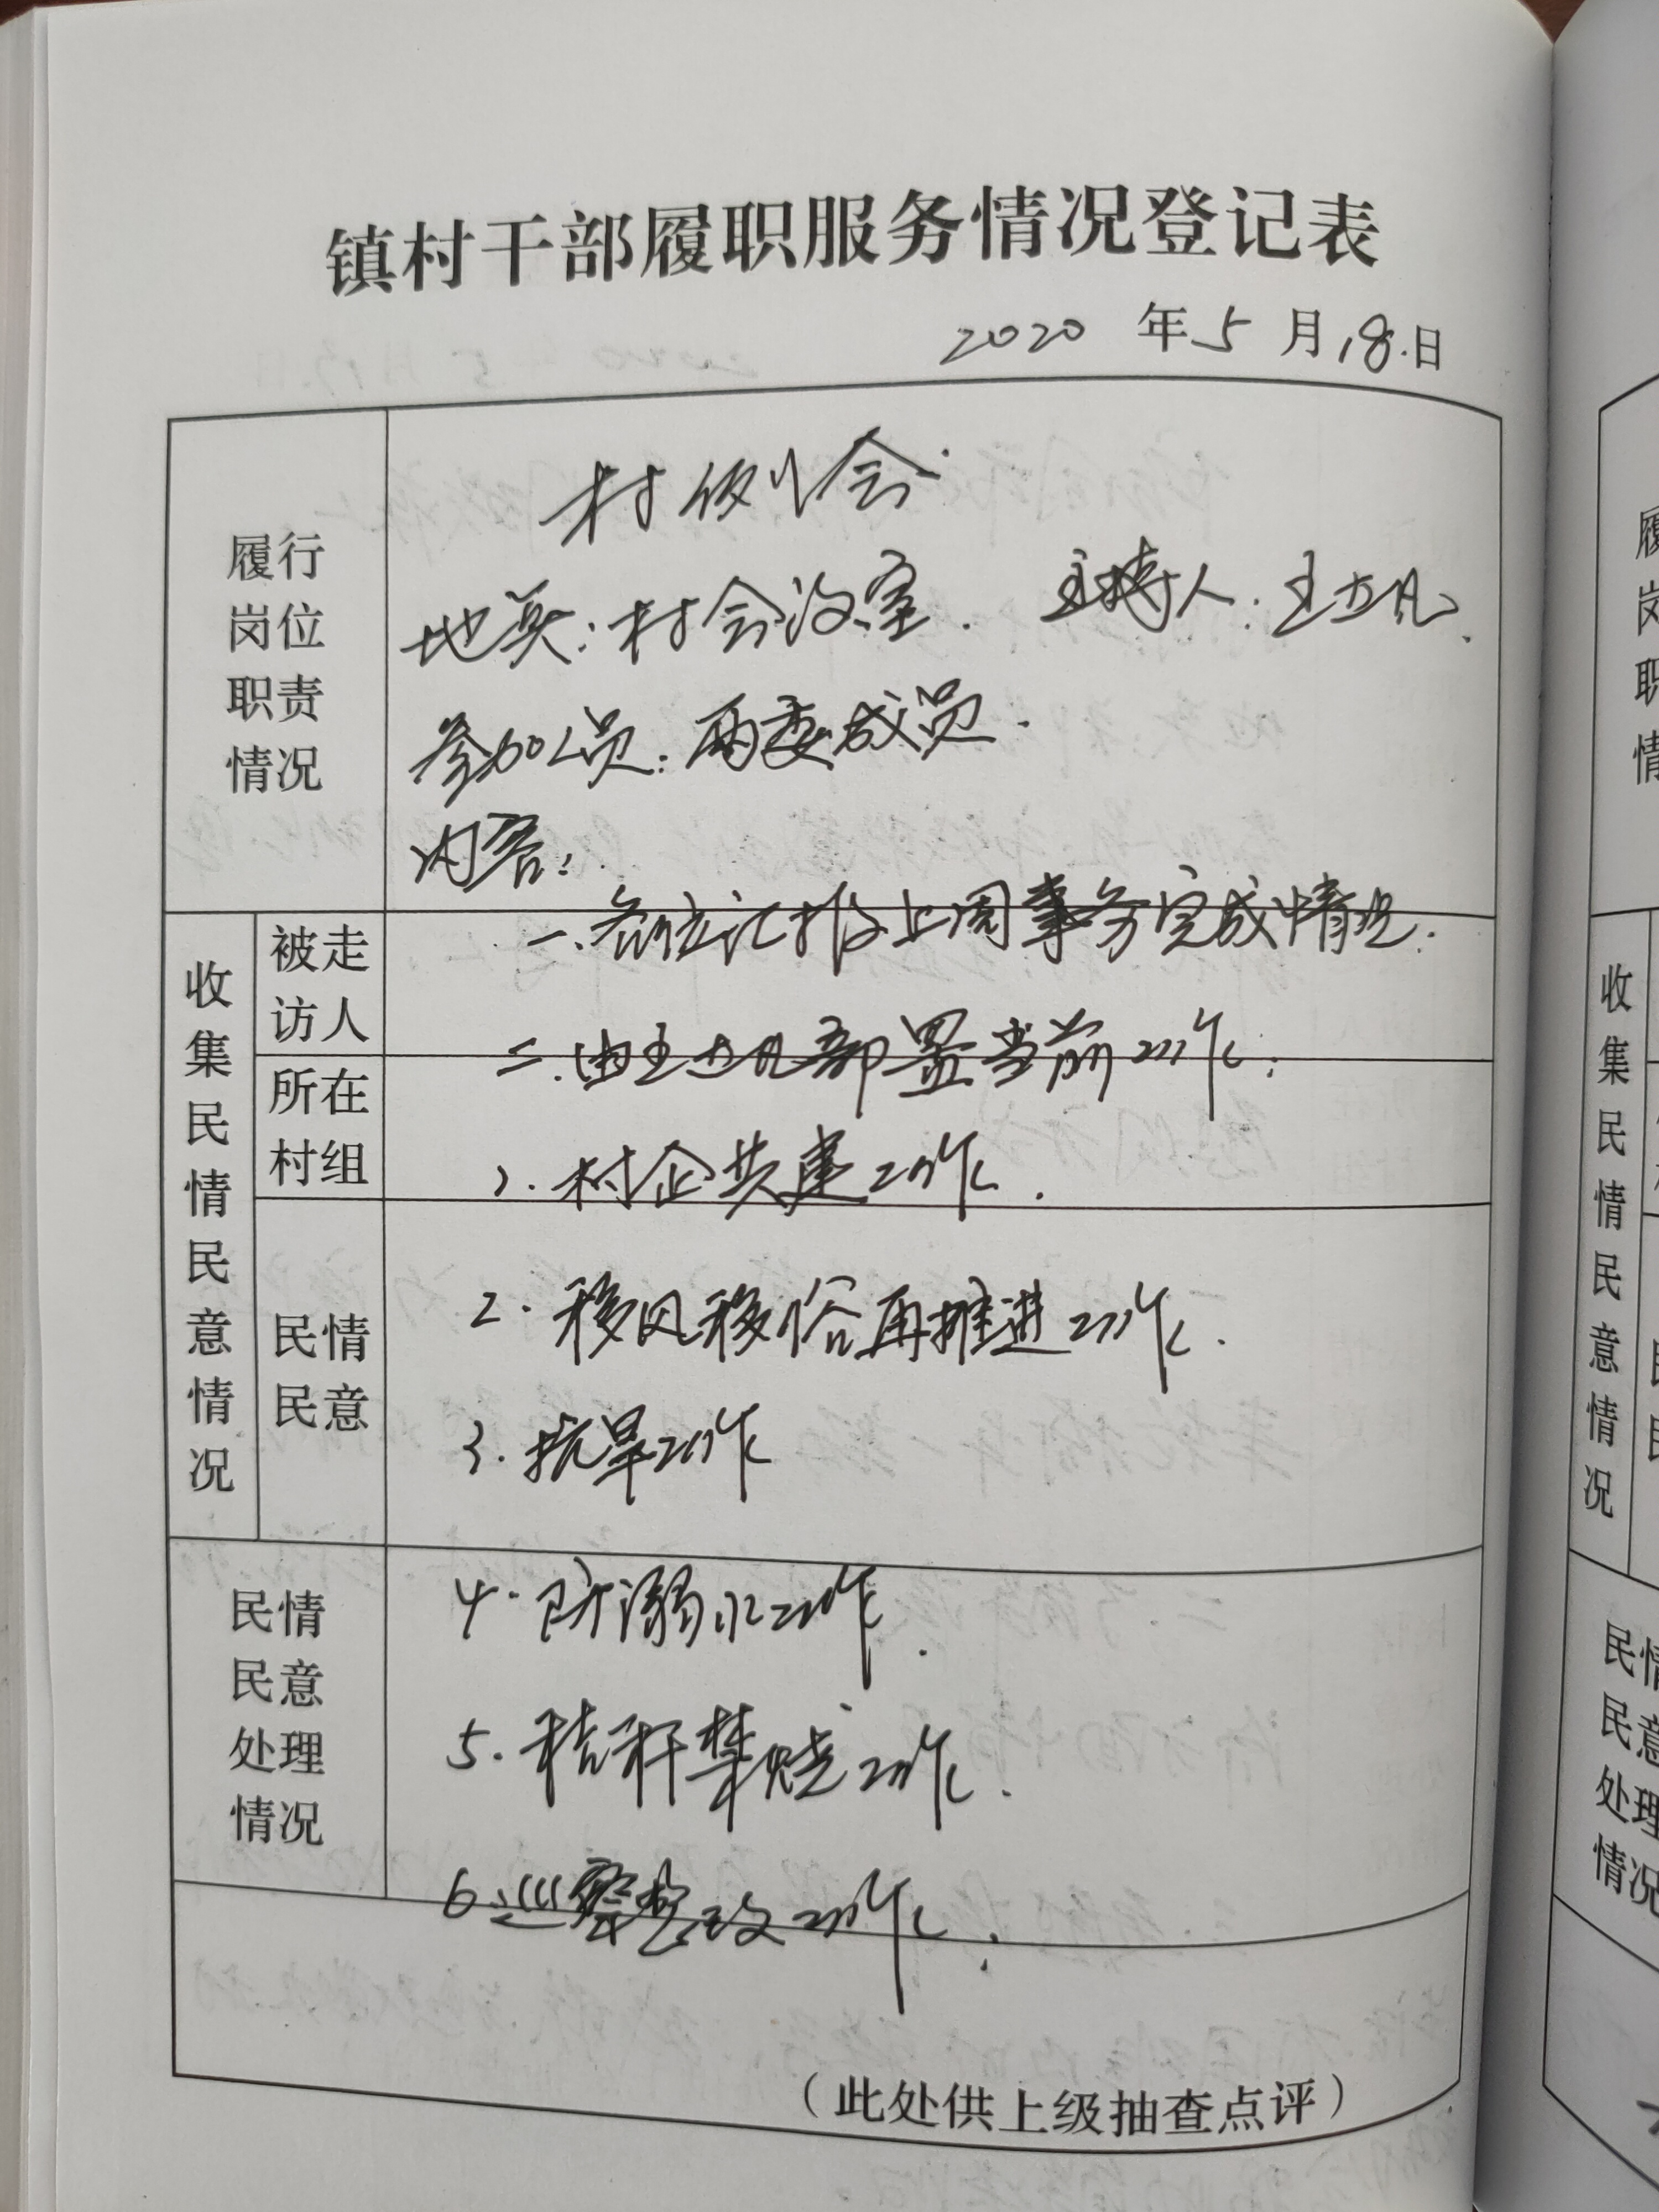 镇村干部履职服务情况登记表
2020 年 5 月 18 日
履行
岗位
职责
情况
村例会
地点：村会议室. 主持人：王士凡.
参加人员：两委成员.
内容：
收集民情民意情况
被走
访人
一、各位汇报上周事务完成情况.
二、由王士凡部置当前工作：
所在
村组
1. 村企共建工作.
民情
民意
2. 移风移俗再推进工作.
3. 抗旱工作
民情
民意
处理
情况
4. 防溺水工作.
5. 秸秆禁烧工作.
6. 巡察整改工作.
（此处供上级抽查点评）
履
岗
职
情
收集民情民意情况
民情
民意
处理
情况